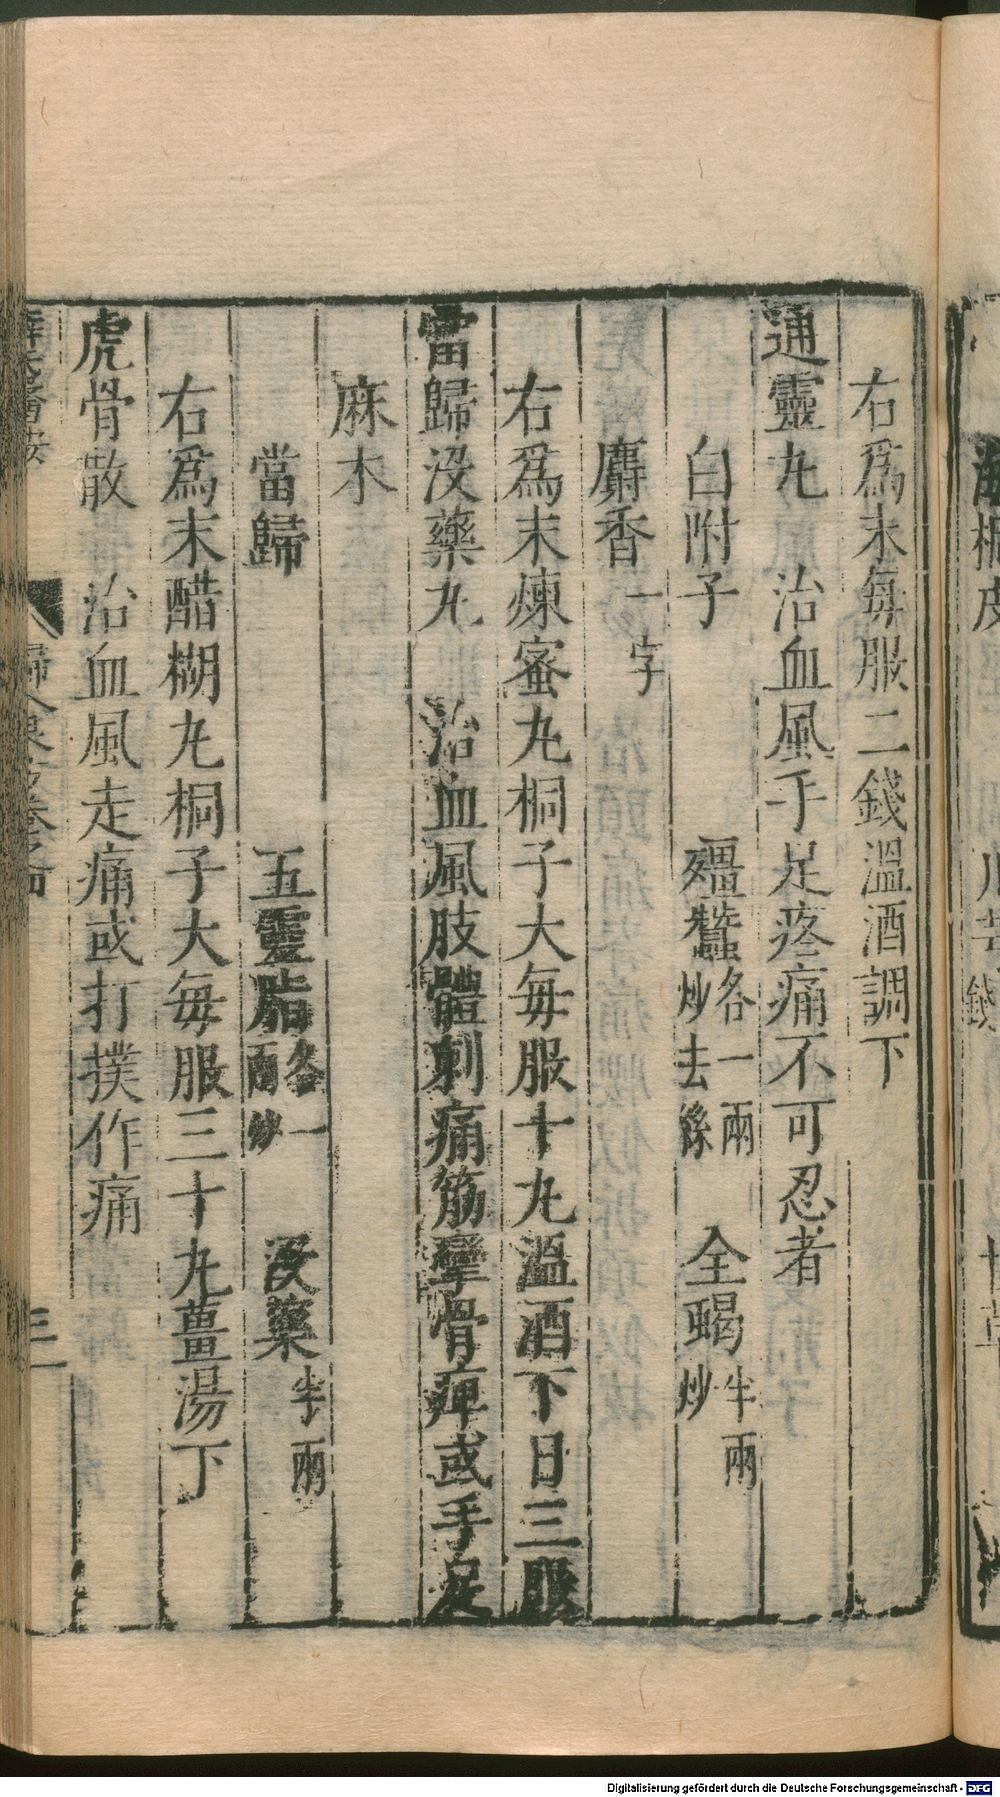 右爲末每服二錢溫酒調下
通靈丸　治血風手足疼痛不可忍者
白附子　殭蠶各一兩炒去絲　全蝎半兩炒
麝香一字
右爲末煉蜜丸桐子大每服十丸溫酒下日三服
當歸没藥丸　治血風肢體刺痛筋攣骨痺或手足
麻木
當歸　五靈脂各一兩炒　没藥半兩
右爲末醋糊丸桐子大每服三十丸薑湯下
虎骨散　治血風走痛或打撲作痛
Digitalisierung gefördert durch die Deutsche Forschungsgemeinschaft - DFG